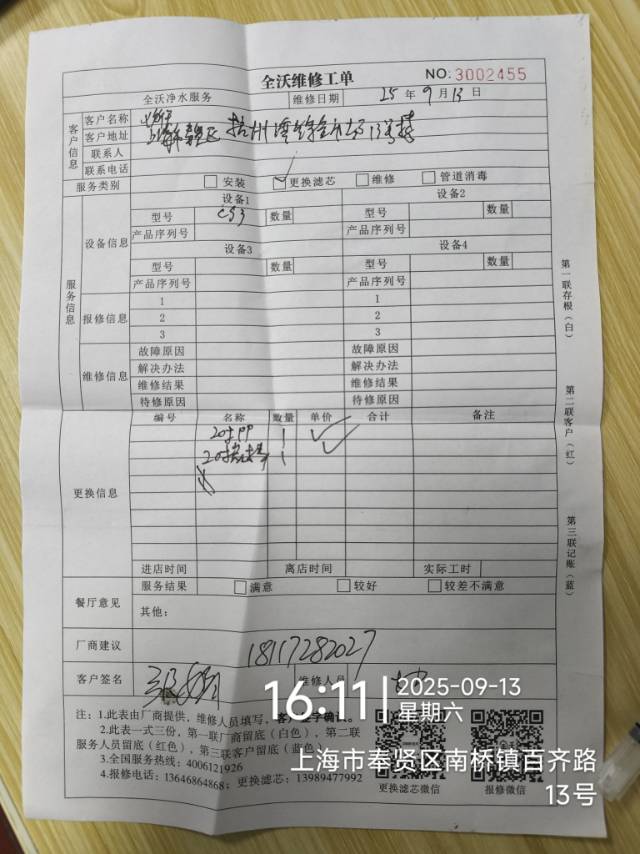 全沃维修工单
NO: 3002455
全沃净水服务 维修日期 25 年 9 月 13 日
客户信息
客户名称
客户地址
联系人
联系电话
服务类别 安装 更换滤芯 维修 管道消毒
服务信息
设备信息
设备1 设备2
型号 数量 型号 数量
产品序列号 产品序列号
设备3 设备4
型号 数量 型号 数量
产品序列号 产品序列号
报修信息
1 1
2 2
3 3
维修信息
故障原因 故障原因
解决办法 解决办法
维修结果 维修结果
待修原因 待修原因
更换信息
编号 名称 数量 单价 合计 备注
20寸PP 1
进店时间 离店时间 实际工时
餐厅意见
服务结果 满意 较好 较差不满意
其他:
厂商建议 18117282027
客户签名 维修人员
注:1.此表由厂商提供,维修人员填写,客户签字确认。
2.此表一式三份,第一联厂商留底(白色),第二联
服务人员留底(红色),第三联客户留底(蓝色)
3.全国服务热线:4006121926
4.报修电话:13646864868;更换滤芯:13989477992
更换滤芯微信 报修微信
第一联存根(白)
第二联客户(红)
第三联记账(蓝)
16:11
2025-09-13
星期六
上海市奉贤区南桥镇百齐路
13号